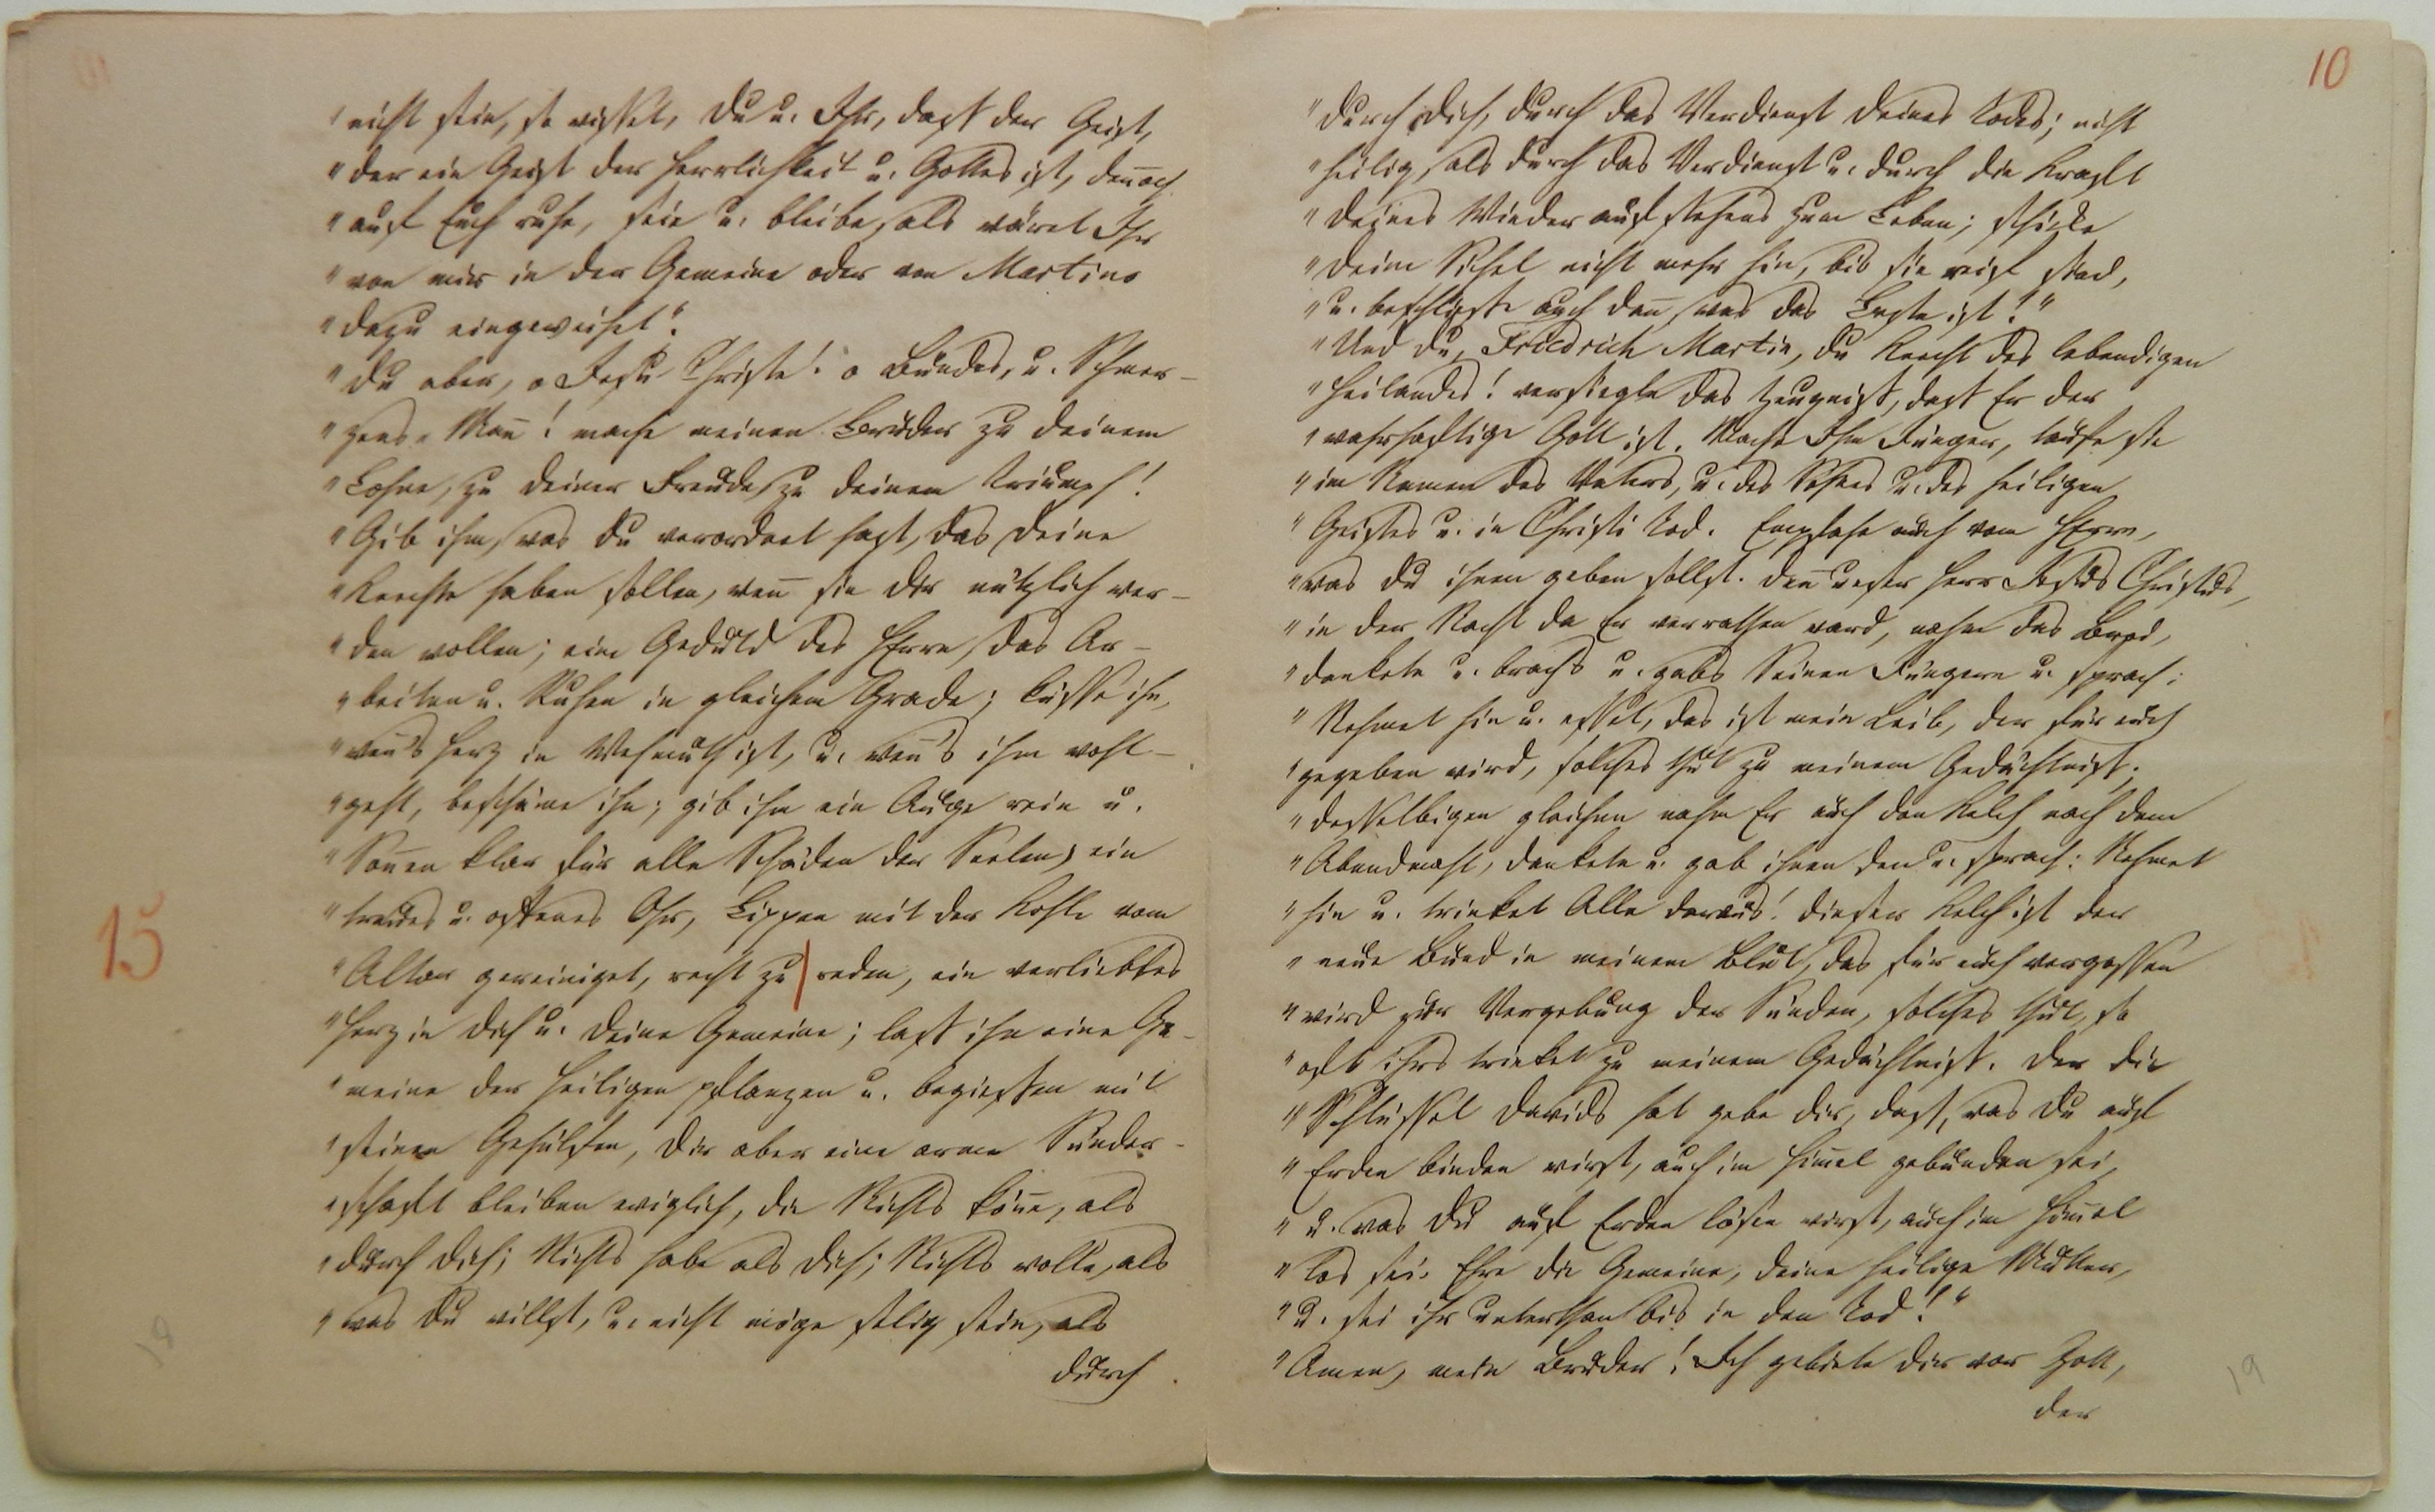 "nicht sein, so wisset, Du u. Ihr, daß der Geist,
"der ein Geist der Herrlichkeit u. Gottes ist, den̄och
"auf Euch ruhe, sein u. bleibe, als wäret Ihr
"von mir in der Gemeine oder von Martino
"dazu eingeweihet".
"Du aber, o Jesu Christe! o Bundes, u. Schmer-
"zens-Man̄! mache meinen Bruder zu Deinem
"Lohne, zu Deiner Freude, zu Deinem Triumph!
"Gib ihm, was Du verordnet hast, das Deine
"Knechte haben sollen, wen̄ sie Dir nützlich wer-
"den wollen; eine Geduld des HErrn, das Ar-
"beiten u. Ruhen in gleichem Grade; küsse ihn,
"wen̄'s Herz in Wehmuth ist, u. wen̄'s ihm wohl-
"geht, beschäme ihn; gib ihm ein Auge rein u.
"Son̄en klar für alle Schäden der Seelen; ein
"treues u. offenes Ohr, Lippen mit der Kohle vom
15
"Altar gereiniget, recht zu | reden, ein verliebtes
"Herz in Dich u. Deine Gemeine; laß ihn eine Ge-
"meine der Heiligen pflanzen u. begießen mit
"seinen Gehülfen, Dir aber eine arme Sünder-
"schaft bleiben ewiglich, die Nichts kön̄e, als
"durch Dich; Nichts habe als Dich; Nichts wolle, als
"was Du willst, u. nicht möge selig sein, als
durch
10
"durch Dich, durch das Verdienst Deines Todes; nicht
"heilig, als durch das Verdienst u. durch die Kraft
"Deines Wiederaufstehens zum Leben; schicke
"Deine Sichel nicht mehr hin, bis sie reif sind,
"u. beschließe auch dan̄, was das Beste ist!"
"Und du, Friedrich Martin, du Knecht des lebendigen
"Heilandes! versiegle das Zeugniß, daß Er der
"wahrhaftige Gott ist. Mache Ihm Jünger, taufe sie
"im Namen des Vaters, u. des Sohnes u. des heiligen
"Geistes u. in Christi Tod. Empfahe auch vom HErrn,
"was du ihnen geben sollst. Den̄ unser Herr Jesus Christus,
"in der Nacht da Er verrathen ward, nahm das Brod,
"dankete u. brachs u. gabs Seinen Jüngern u. sprach:
"Nehmet hin u. esset, das ist mein Leib, der für euch
"gegeben wird, solches thut zu meinem Gedächtniß.
"Desselbigen gleichen nahm Er auch den Kelch nach dem
"Abendmahl, dankete u. gab ihnen den u. sprach: Nehmet
"hin u. trinket Alle daraus! dieser Kelch ist der
"neue Bund in meinem Blut, das für euch vergossen
"wird zur Vergebung der Sünden, solches thut, so
"oft ihrs trinket zu meinem Gedächtniß. Der die
"Schlüssel Davids hat gebe dir, daß, was du auf
"Erden binden wirst, auch im Him̄el gebunden sei,
"u. was du auf Erden lösen wirst, auch im Him̄el
"los sei. Ehre die Gemeine, deine heilige Mutter,
"u. sei ihr unterthan bis in den Tod!"
"Amen, mein Bruder! Ich gebiete dir vor Gott,
der
19